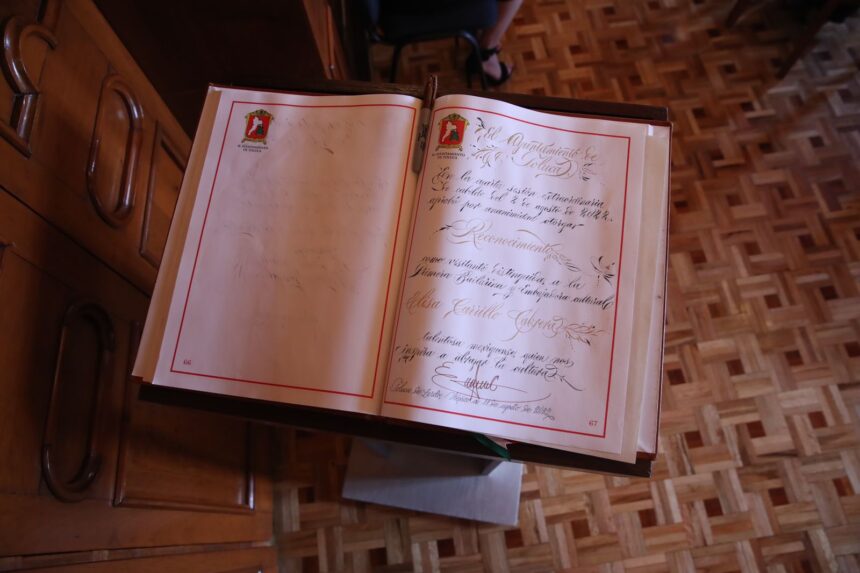 H. AYUNTAMIENTO
DE TOLUCA
66
H. AYUNTAMIENTO
DE TOLUCA
El Ayuntamiento de
Toluca
En la cuarta sesión extraordinaria
de cabildo del 4 de agosto de 2022
aprobó por unanimidad otorgar
Reconocimiento
como visitante distinguida, a la
Primera Bailarina y Embajadora cultural
Elisa Carrillo Cabrera
talentosa mexiquense, quien nos
inspira a abrazar la cultura
agosto de 2022
67